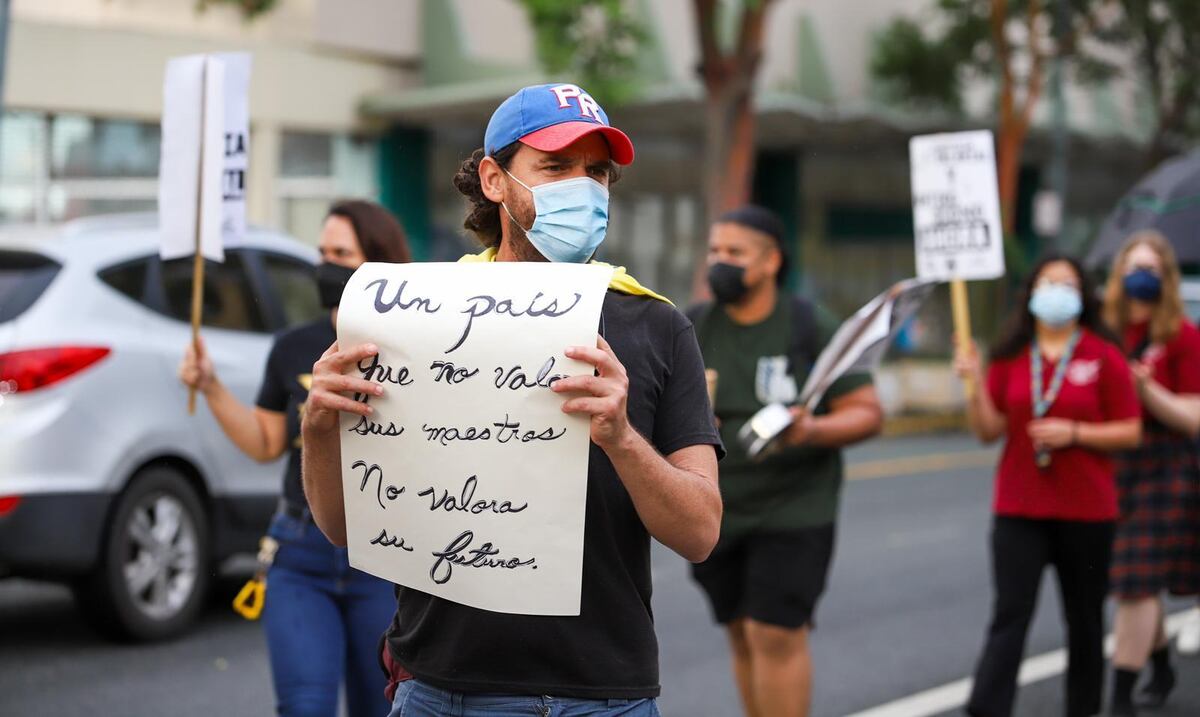 PR
Un país
que no valora
sus maestros
No valora
su futuro.